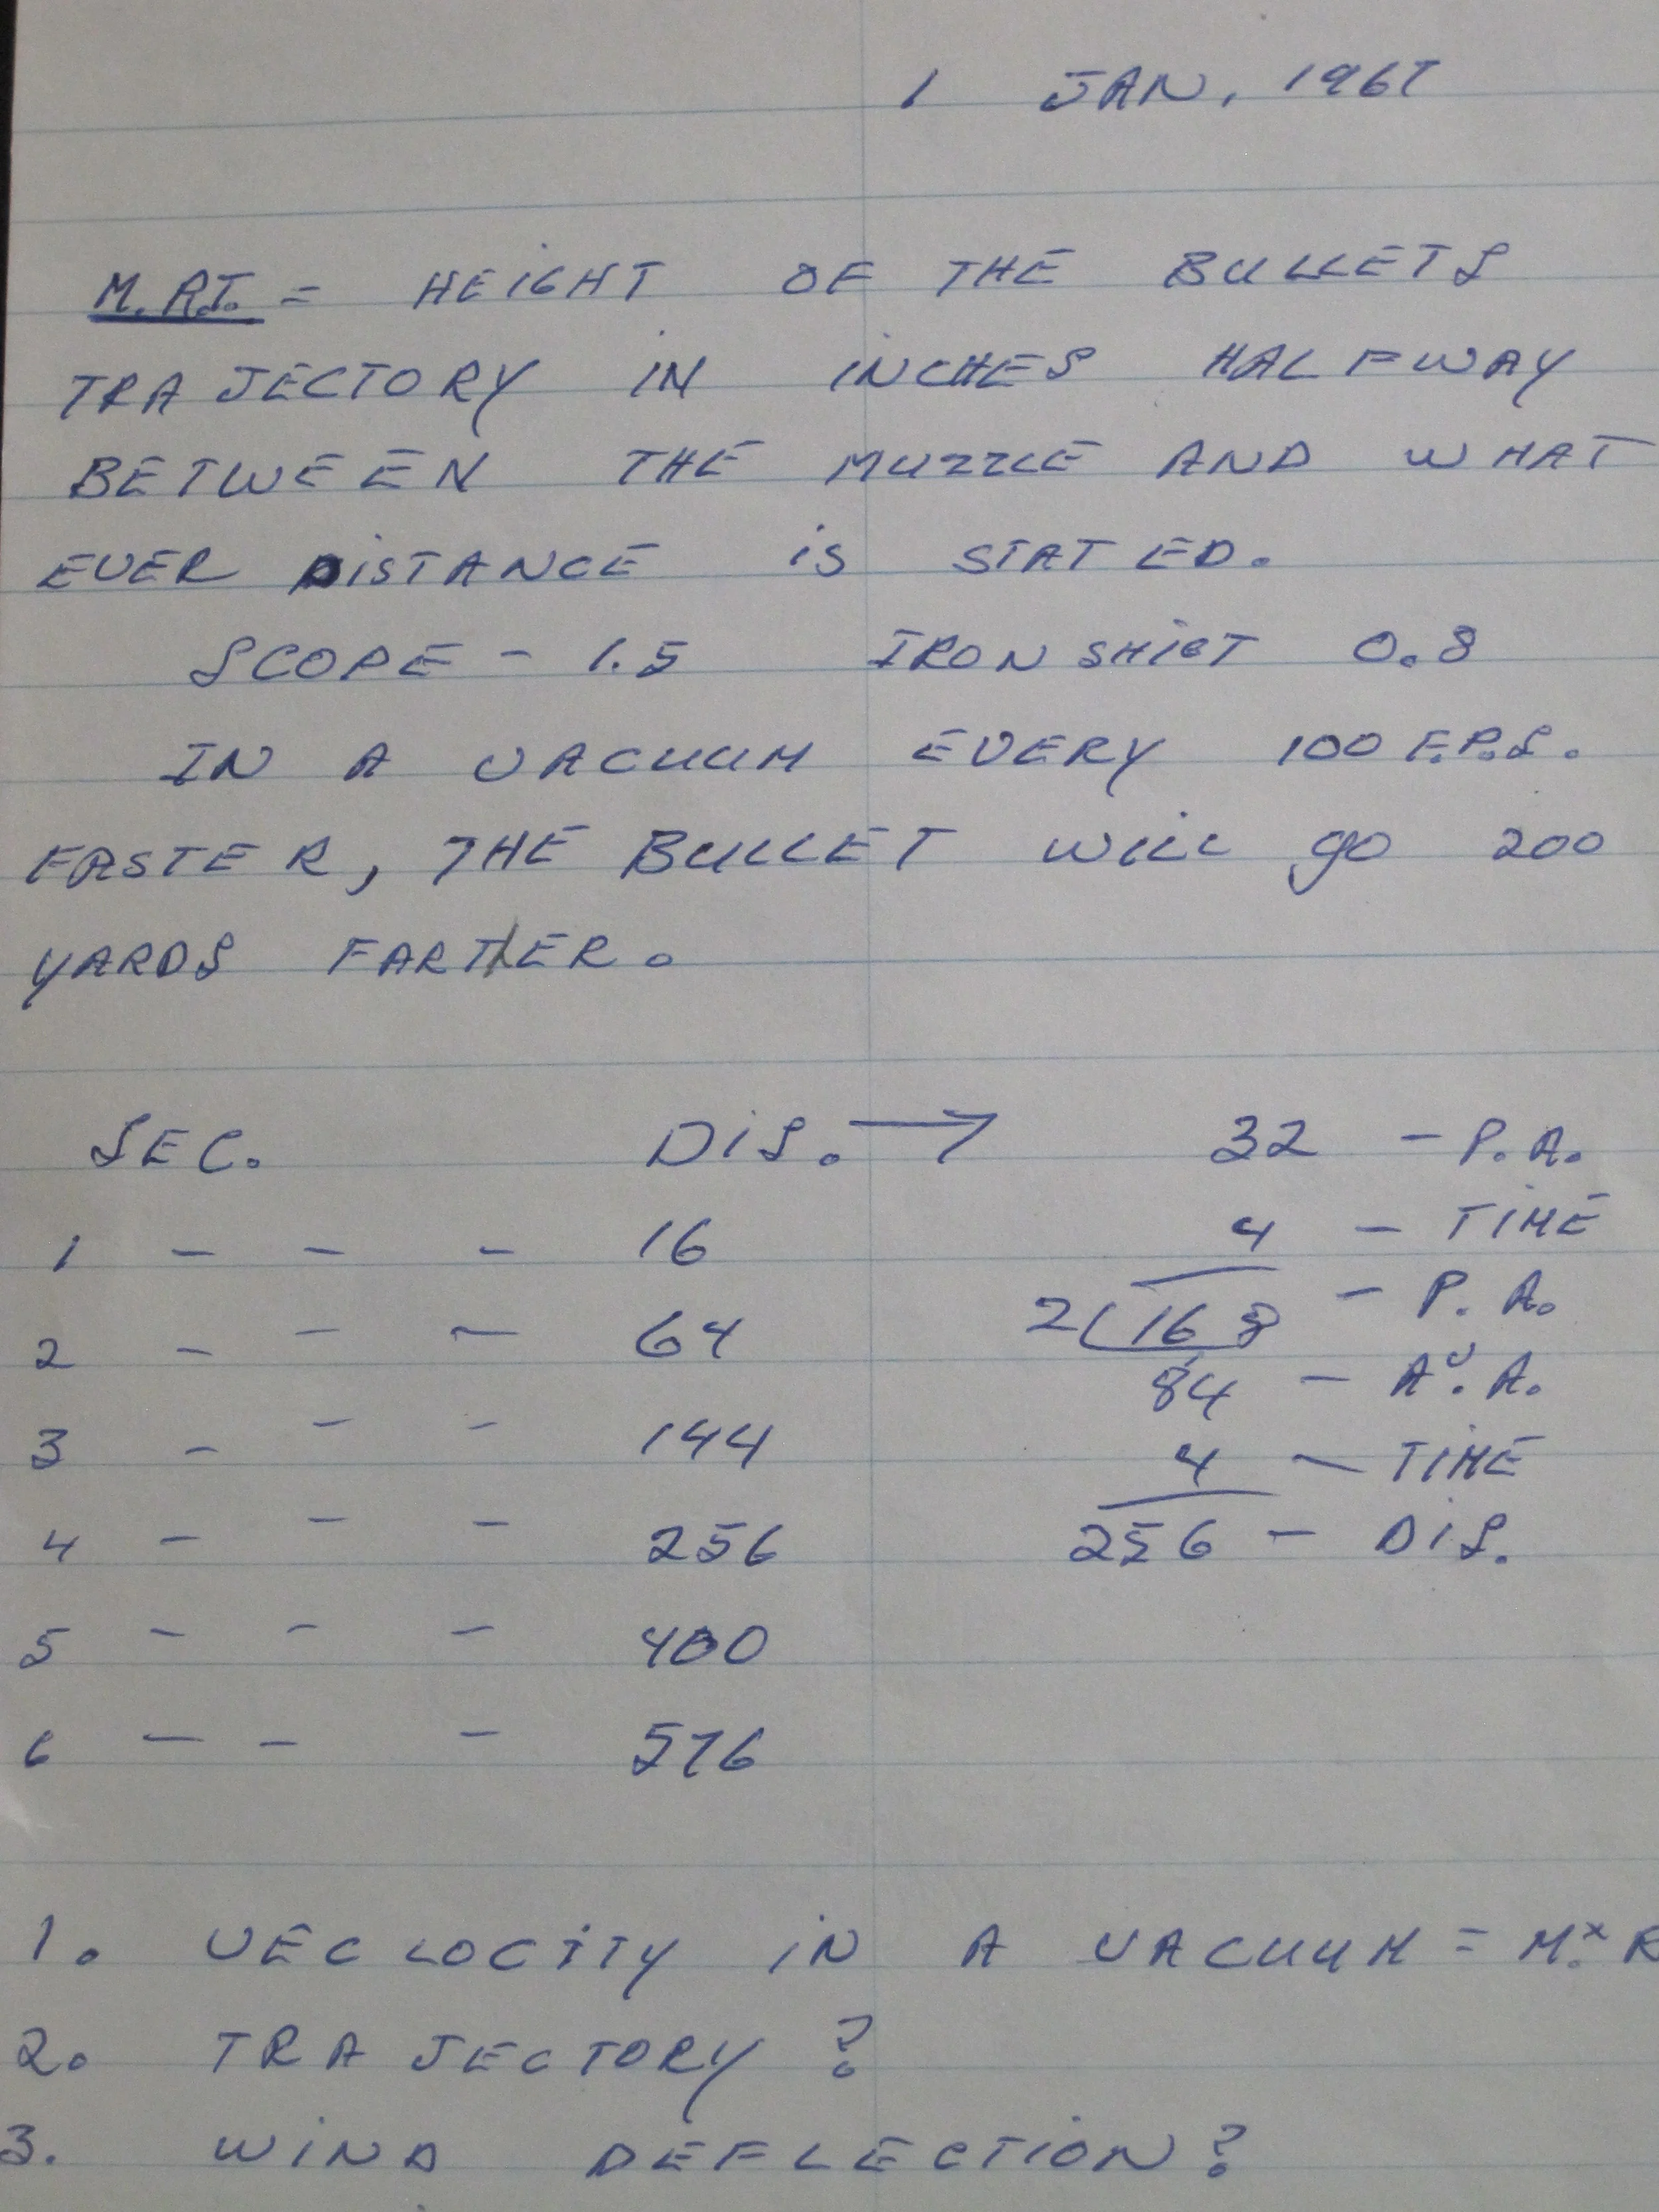 1 JAN, 1967
M.R.T. = HEIGHT OF THE BULLETS
TRAJECTORY IN INCHES HALFWAY
BETWEEN THE MUZZLE AND WHAT
EVER DISTANCE iS STATED.
SCOPE - 1.5 IRON SHIGT 0.8
IN A VACUUM EVERY 100 F.P.S.
FASTER, THE BULLET WILL go 200
YARDS FARTHER.
SEC. DIS. → 32 - P.A.
1 - - - 16 4 - TIME
2 - - - 64 2(168 - P.A.
84 - AV. A.
3 - - - 144 4 - TIME
4 - - - 256 256 - DIS.
5 - - - 400
6 - - - 576
1. VECLOCITY IN A VACUUM = M. x R
2. TRAJECTORY?
3. WIND DEFLECTION?